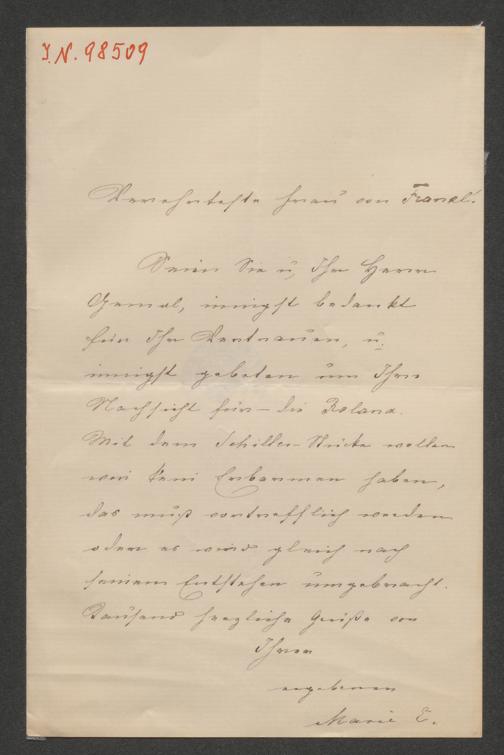 I.N. 98509
Verehrteste Frau von Frankl!
Seien Sie u. Ihr Herr
Gemal, innigst bedankt
für Ihr Vertrauen, u.
innigst gebeten um Ihre
Nachsicht für – die Roland.
Mit dem Schiller-Stücke wollen
wir kein Erbarmen haben,
das muß vortrefflich werden
oder es wird gleich nach
seinem Entstehen umgebracht.
Tausend herzliche Grüße von
Ihrer
ergebenen
Marie E.